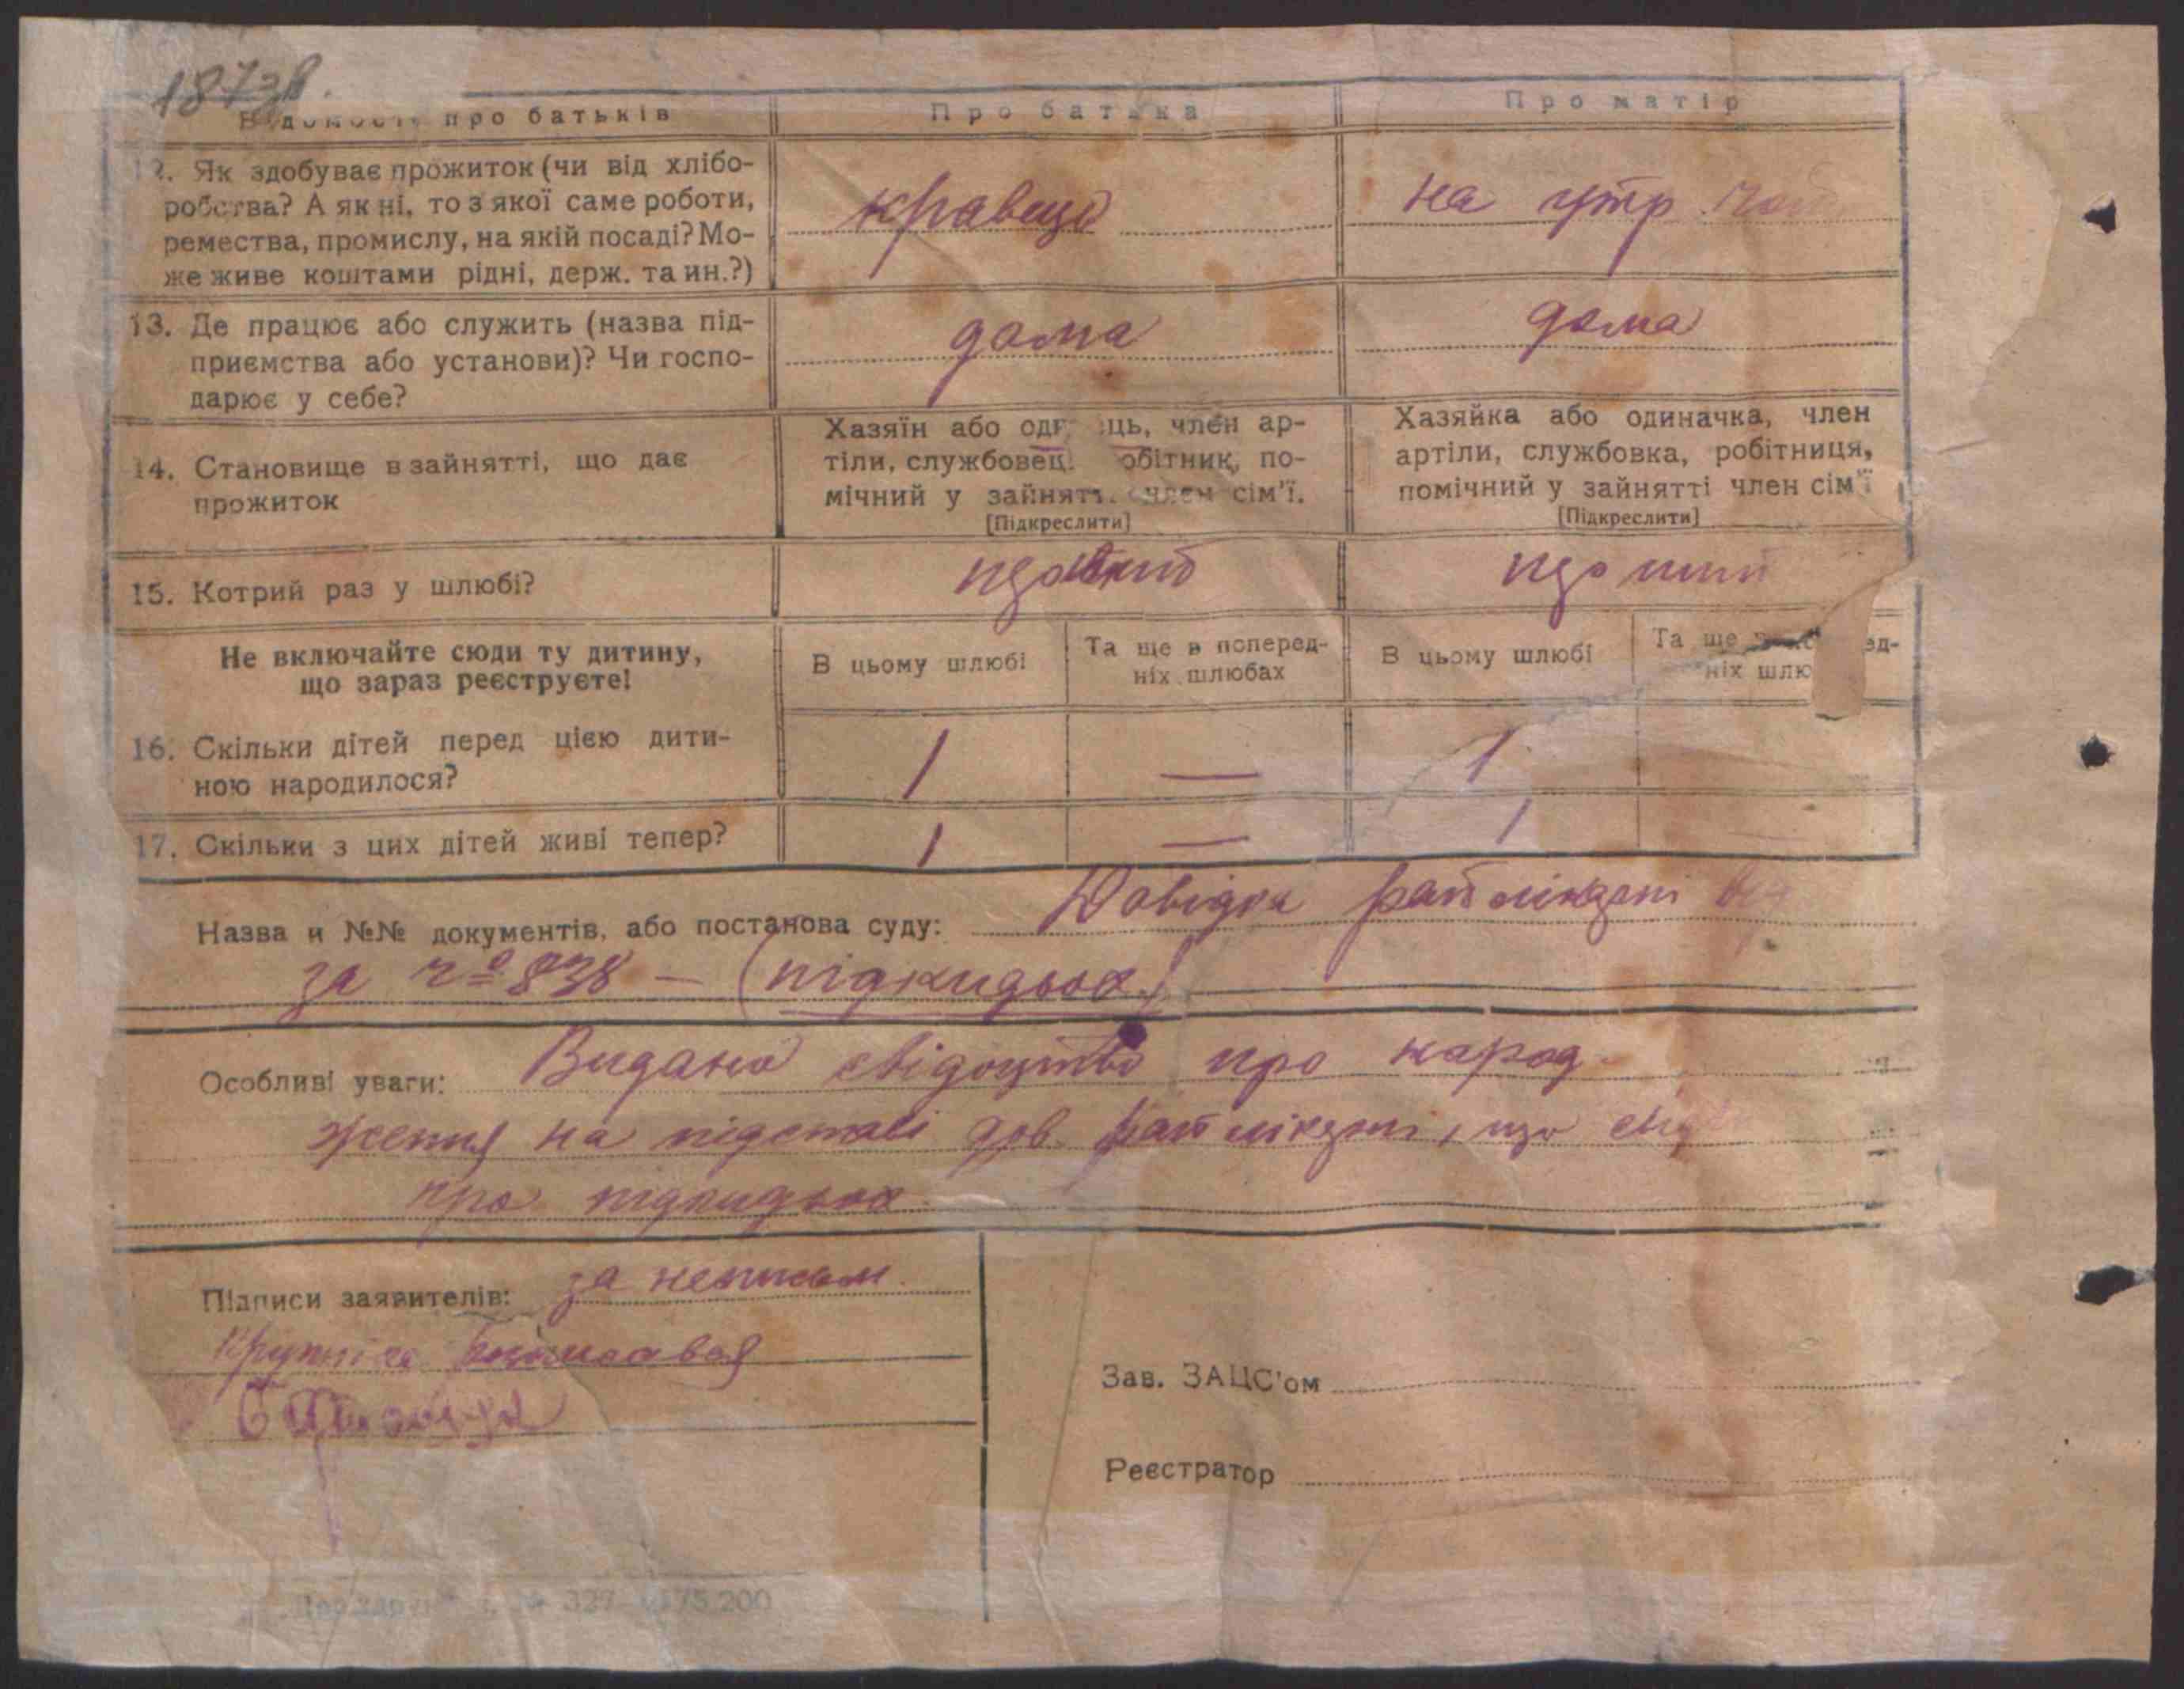 187зв.
про батьків
Про батька
Про матір
12. Як здобуває прожиток (чи від хлібо-
робства? А як ні, то з якої саме роботи,
ремества, промислу, на якій посаді? Мо-
же живе коштами рідні, держ. та ин.?)
кравець
на утр.
13. Де працює або служить (назва під-
приємства або установи)? Чи госпо-
дарює у себе?
дома
дома
14. Становище в зайнятті, що дає
прожиток
Хазяїн або член ар-
тіли, службовец по-
мічний у зайнятт. член сім'ї.
[Підкреслити]
Хазяйка або одиначка, член
артіли, службовка, робітниця,
помічний у зайнятті член сім'ї
[Підкреслити]
15. Котрий раз у шлюбі?
Не включайте сюди ту дитину,
що зараз реєструєте!
В цьому шлюбі
Та ще в поперед-
ніх шлюбах
В цьому шлюбі
Та ще
ніх
16. Скільки дітей перед цією дити-
ною народилося?
1
—
1
17. Скільки з цих дітей живі тепер?
1
—
1
Назва и №№ документів, або постанова суду: Довідка
за № 838 — (підкидьок)
Особливі уваги: Видано свідоцтво про народ-
ження на підставі дов. що
про підкидька
Підписи заявителів: за неписьм.
Зав. ЗАЦС'ом
Реєстратор
№ 327 175.200